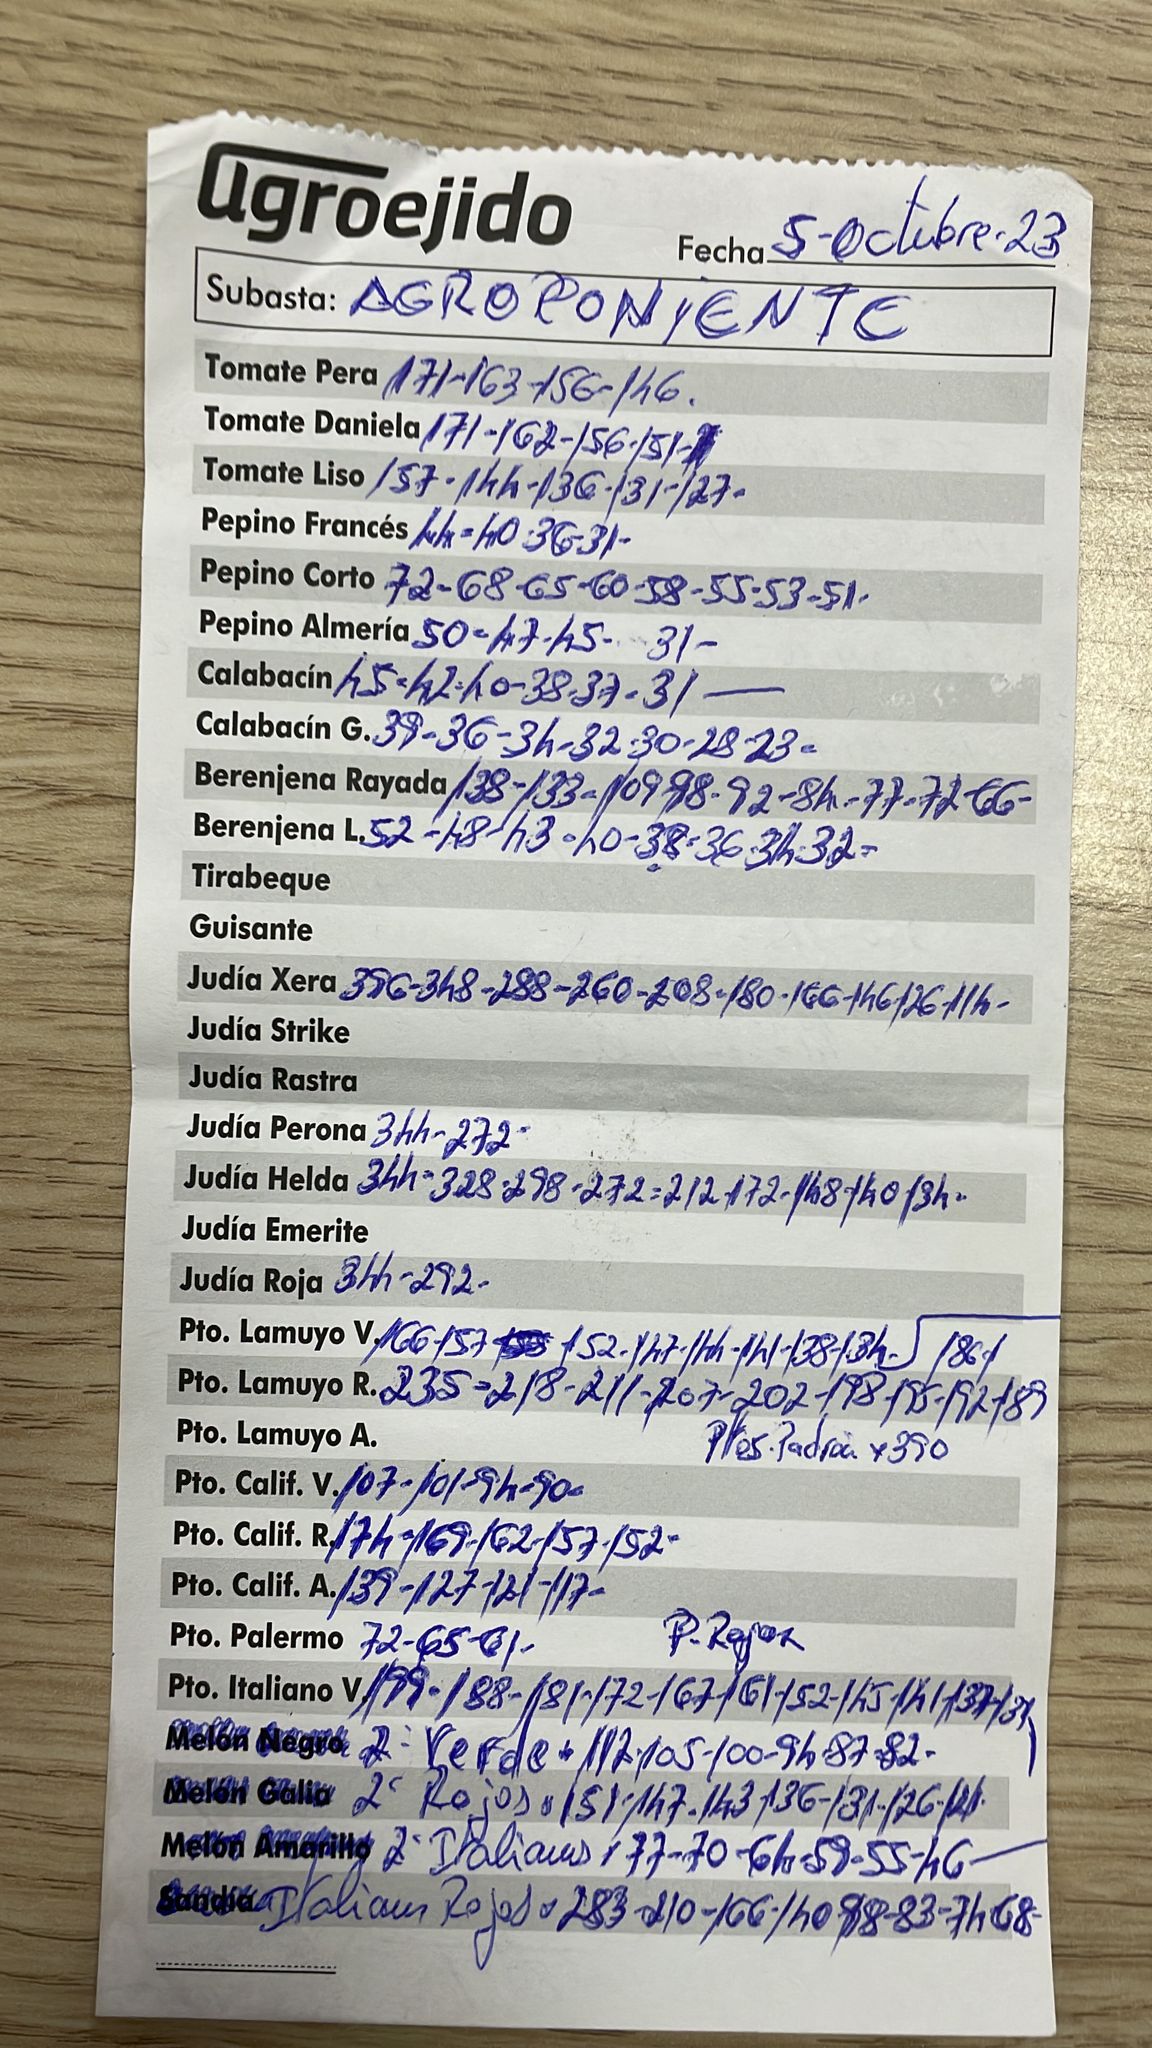 agroejido
Fecha 5-Octubre-23
Subasta: AGROPONIENTE
Tomate Pera 171-163-156-146.
Tomate Daniela 171-162-156-151-
Tomate Liso 157-144-136-131-127-
Pepino Francés 44-40-36-31-
Pepino Corto 72-68-65-60-58-55-53-51-
Pepino Almería 50-47-45- 31-
Calabacín 45-42-40-38-37-31 —
Calabacín G. 39-36-34-32-30-28-23-
Berenjena Rayada 138-133-109-98-92-84-77-72-66-
Berenjena L. 52-48-43-40-38-36-34-32-
Tirabeque
Guisante
Judía Xera 396-348-288-260-208-180-166-146-126-114-
Judía Strike
Judía Rastra
Judía Perona 344-272-
Judía Helda 344-328-298-272-212-172-148-140-134-
Judía Emerite
Judía Roja 344-292-
Pto. Lamuyo V. 166-157 152-147-144-141-138-134- 186-1
Pto. Lamuyo R. 235-218-211-207-202-198-195-192-189
Pto. Lamuyo A. Ptos. Padrón x 390
Pto. Calif. V. 107-101-94-90-
Pto. Calif. R. 174-169-162-157-152-
Pto. Calif. A. 139-127-121-117-
Pto. Palermo 72-65-61- P. Rojos
Pto. Italiano V. 199-188-181-172-167-161-152-145-141-137-131
Melón Negro 2ª Verde 112-105-100-94-87-82-
Melón Galia 2ª Rojos 151-147-143-136-131-126-121-
Melón Amarillo 2ª Italianos 77-70-64-59-55-46 —
Sandía Italianos Rojos 283-210-166-140-98-83-74-68-